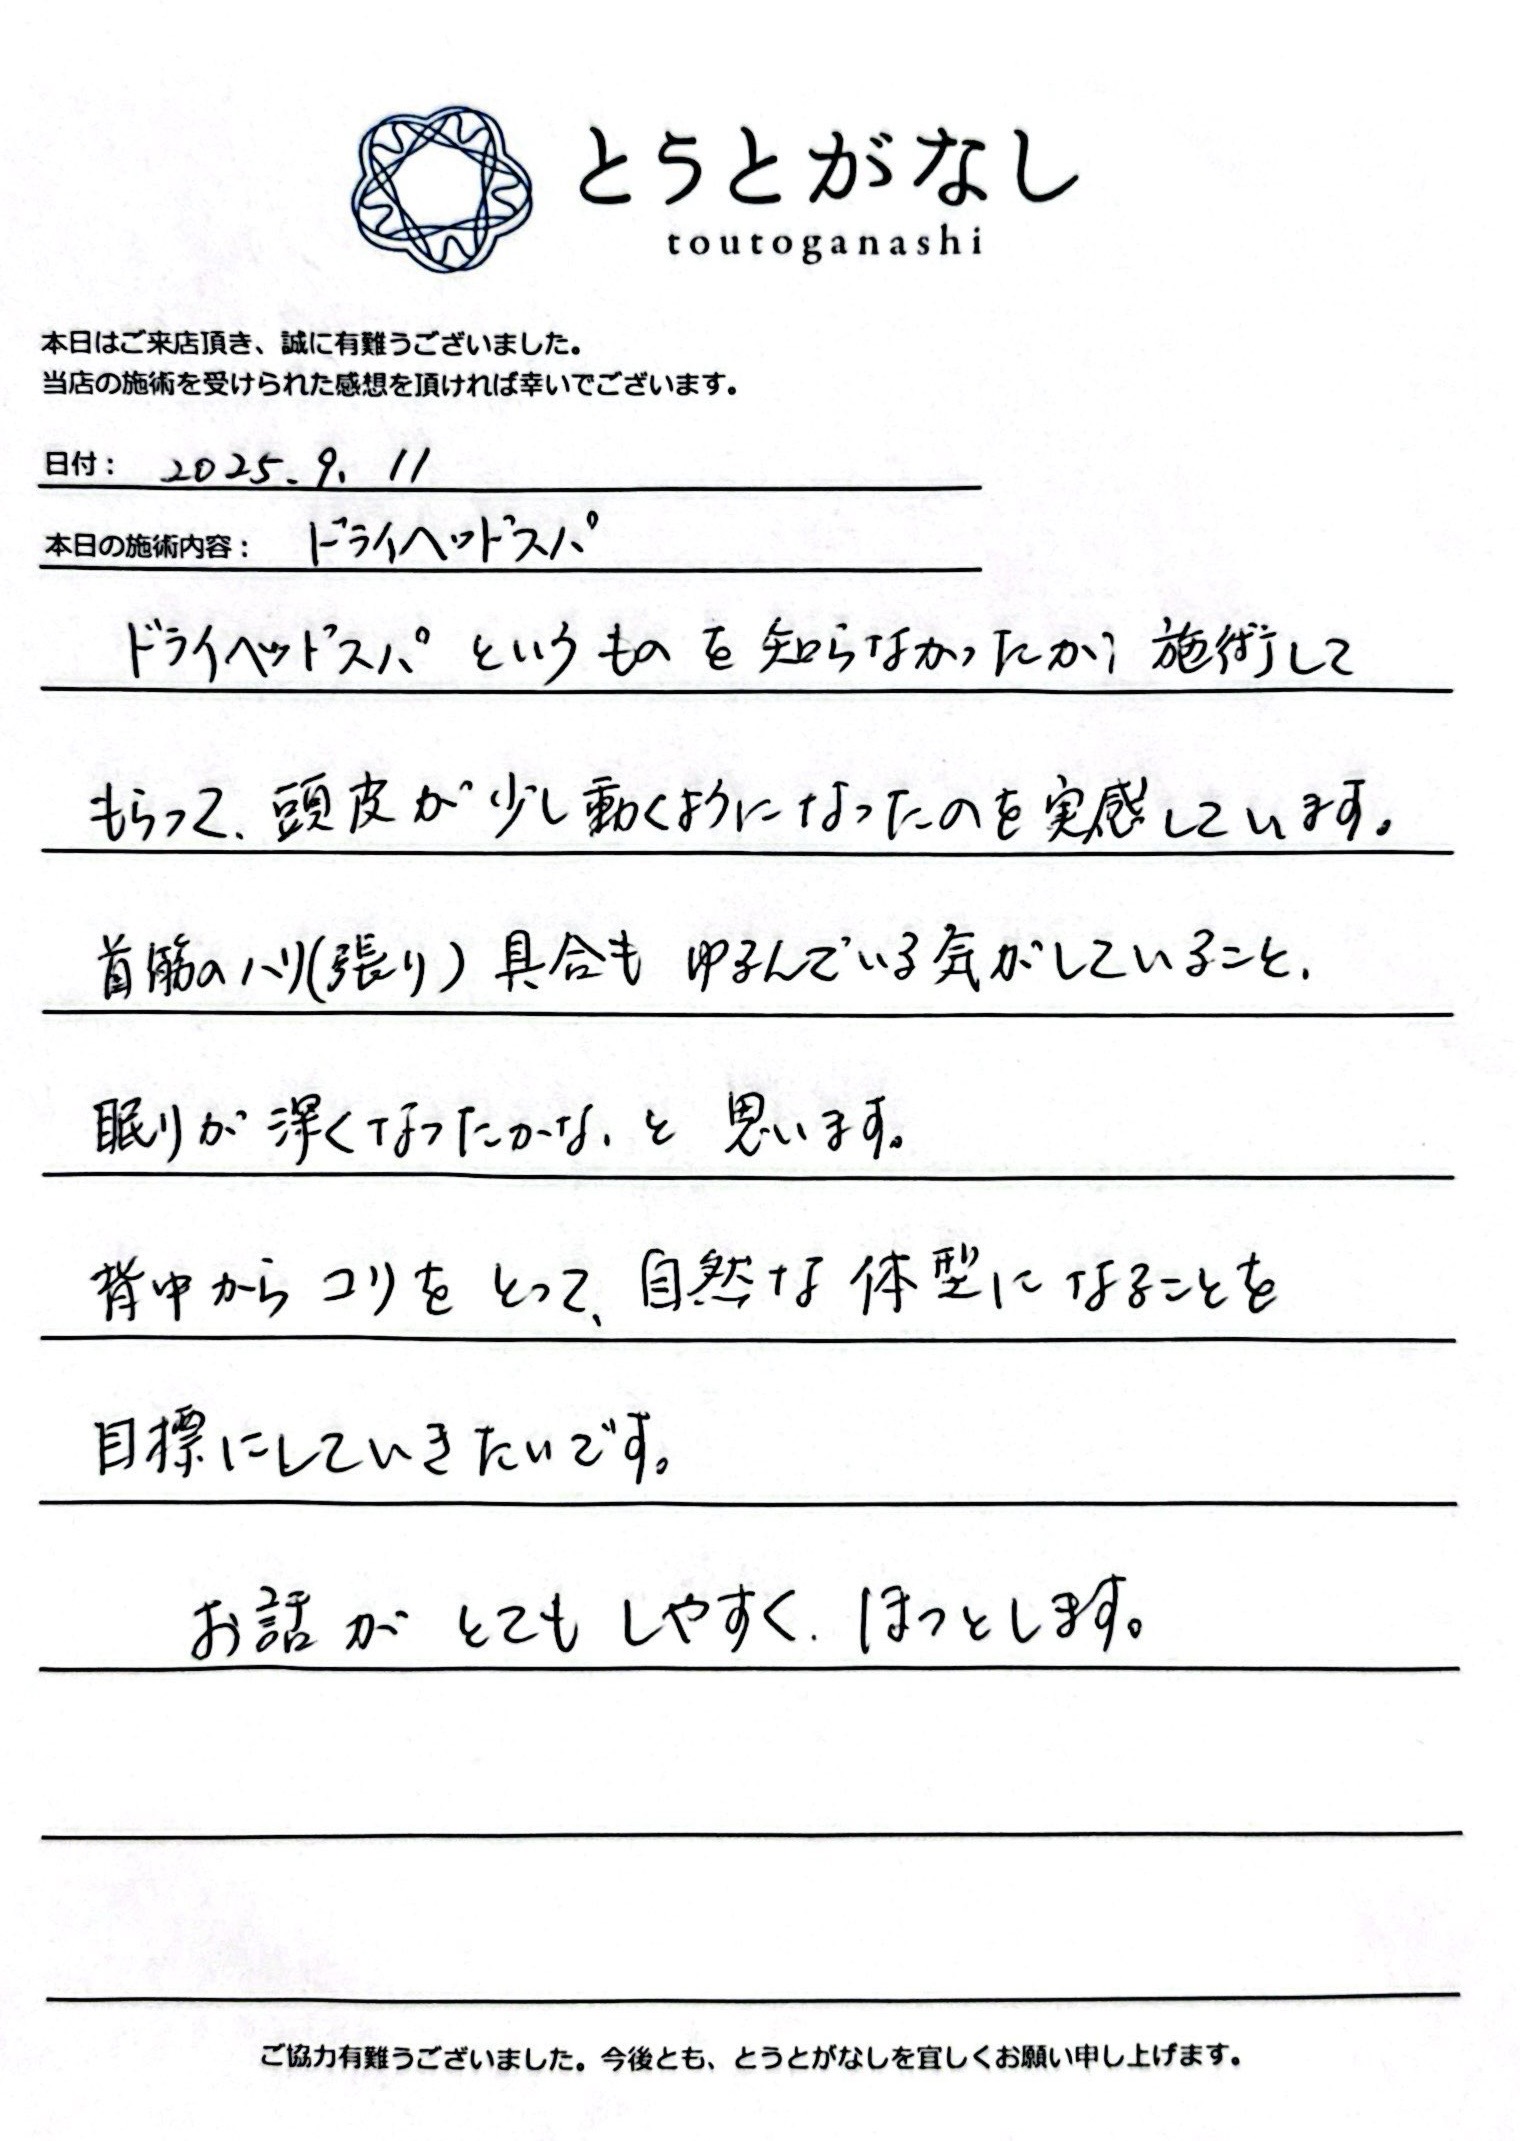 とうとがなし
toutoganashi
本日はご来店頂き、誠に有難うございました。
当店の施術を受けられた感想を頂ければ幸いでございます。
日付： 2025.9.11
本日の施術内容： ドライヘッドスパ
ドライヘッドスパというものを知らなかったが、施術して
もらって、頭皮が少し動くようになったのを実感しています。
首筋のハリ(張り)具合もゆるんでいる気がしていること、
眠りが深くなったかな、と思います。
背中からコリをとって、自然な体型になることを
目標にしていきたいです。
お話がとてもしやすく、ほっとします。
ご協力有難うございました。今後とも、とうとがなしを宜しくお願い申し上げます。